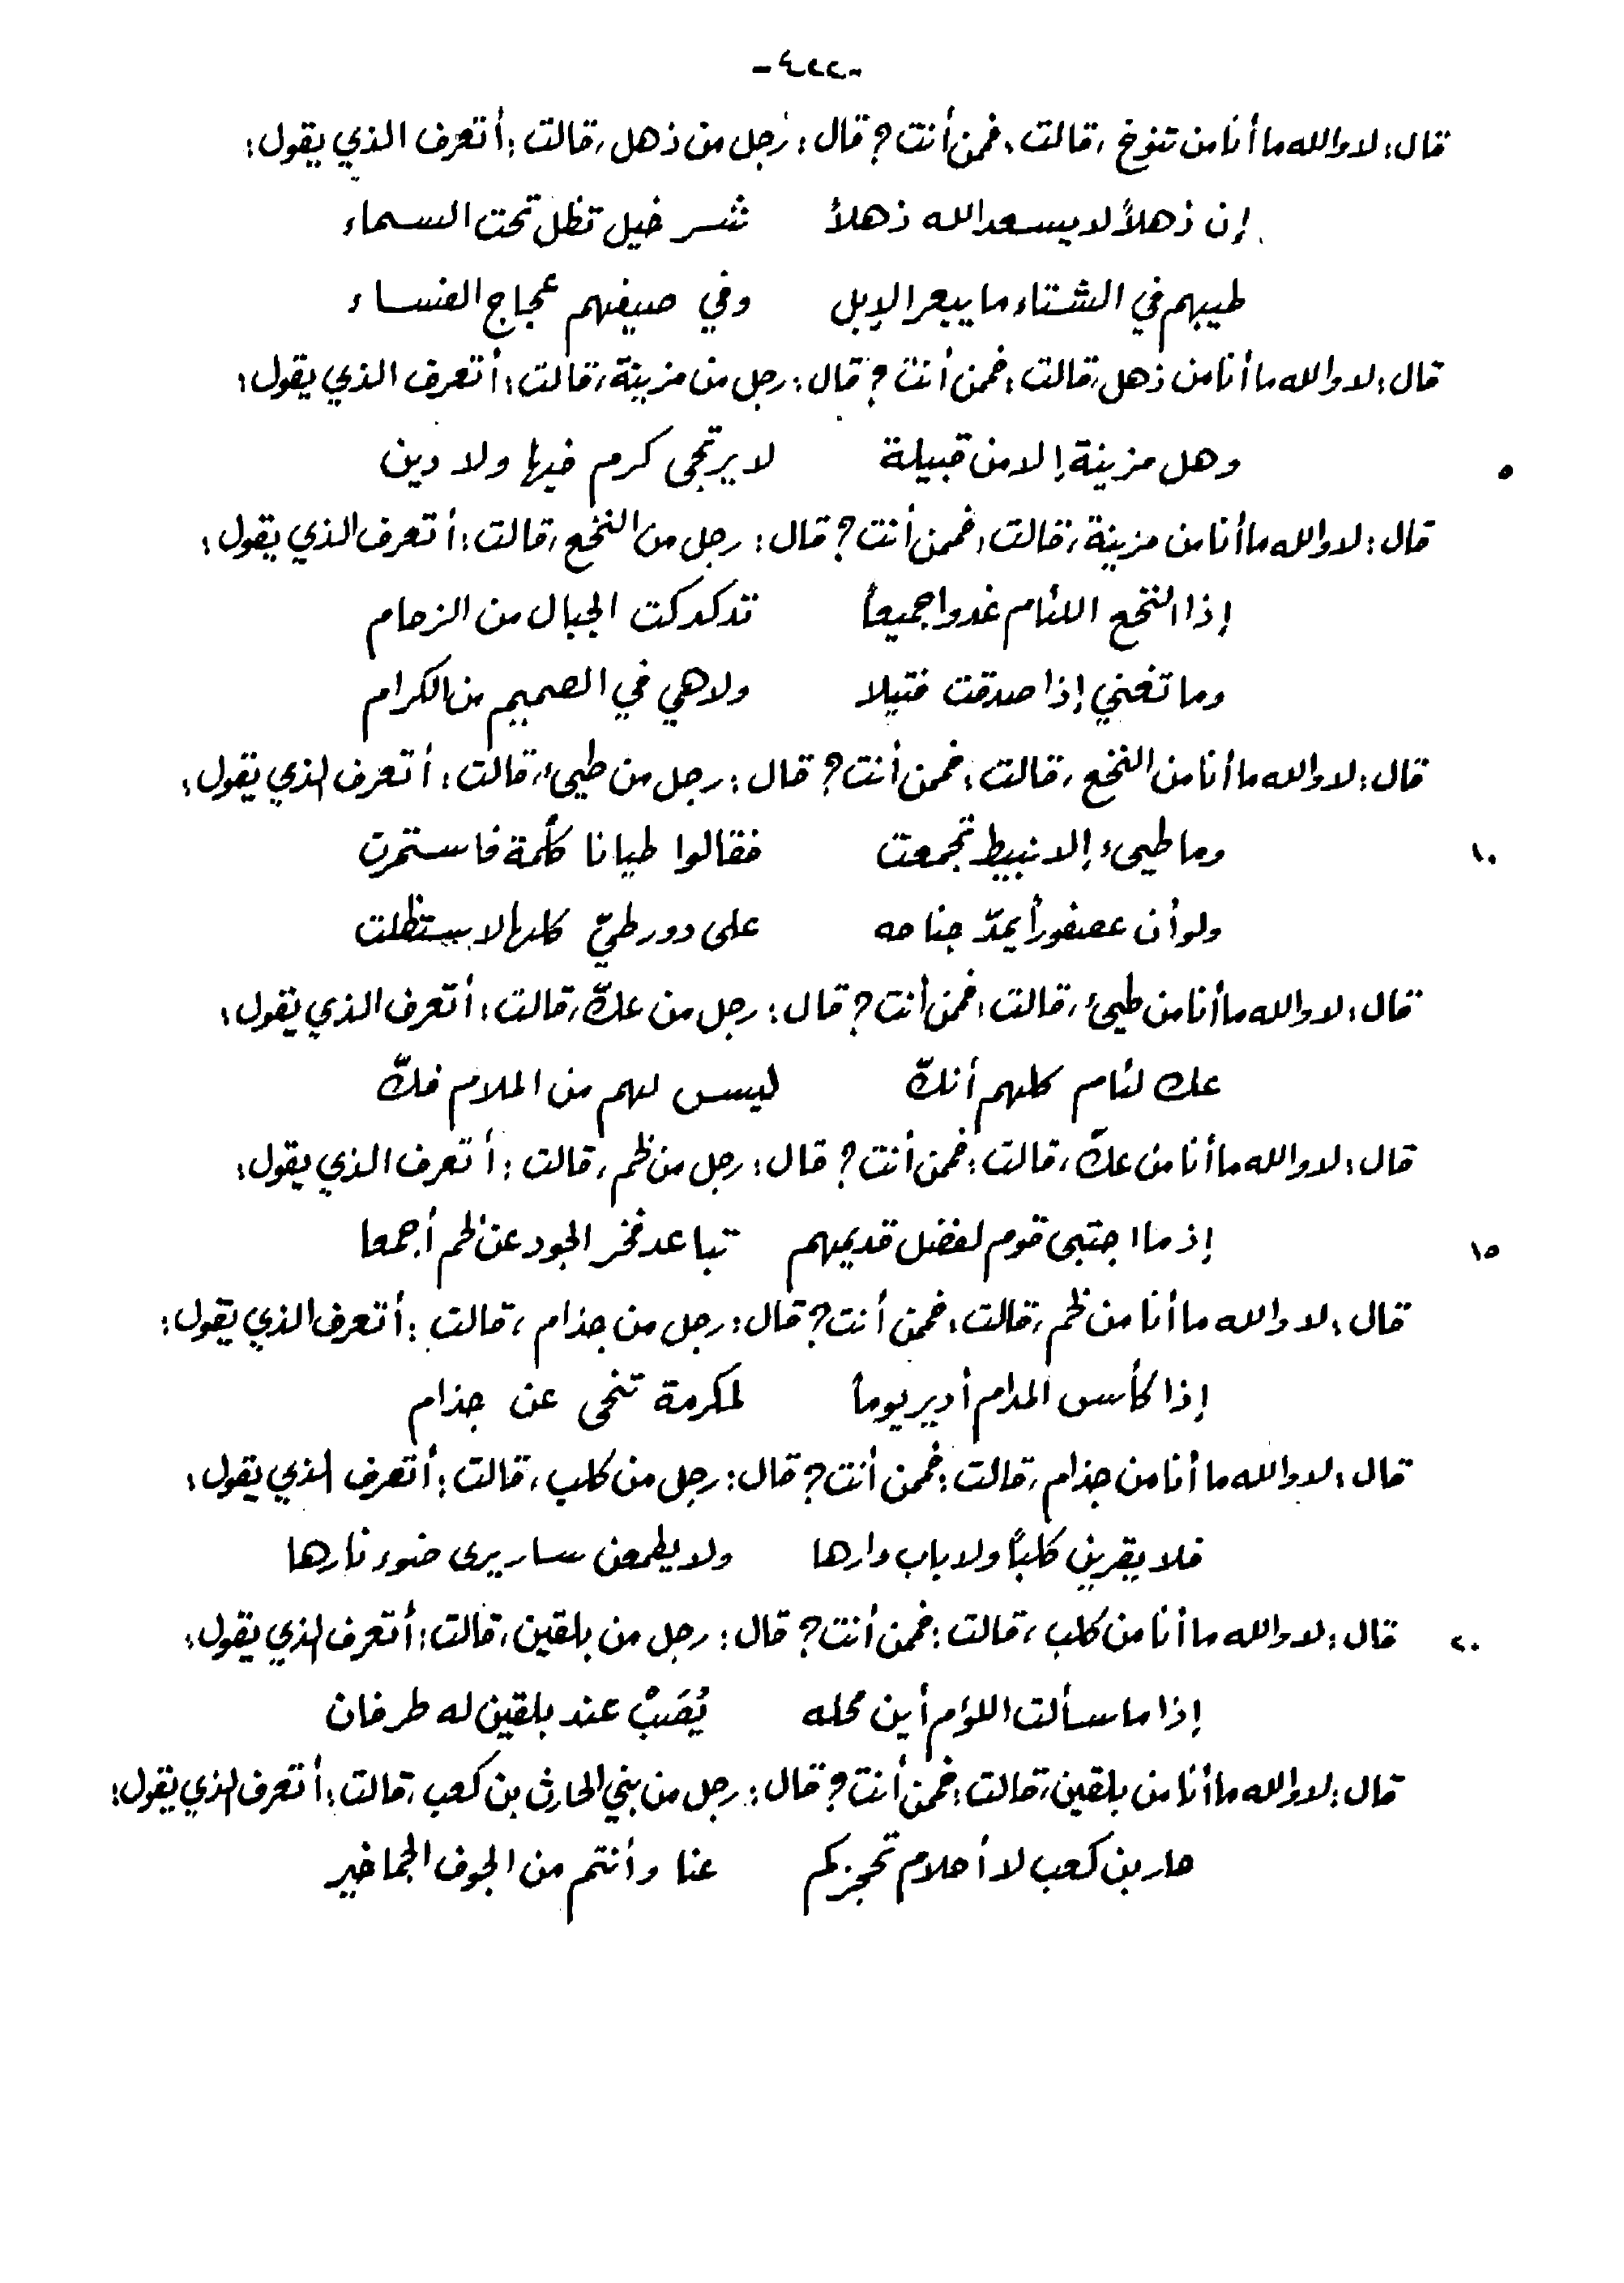 -٢٢٤-
قال: لا والله ما أنا من تنوخ، قالت: فمن أنت؟ قال: رجل من ذهل، قالت: أتعرف الذي يقول:
إن ذهلاً لا يسعد الله ذهلاً شسر خيل تظل تحت السماء
طيبهم في الشتاء ما يبعر الإبل وفي صيفهم عجاج الفساء
قال: لا والله ما أنا من ذهل، قالت: فمن أنت؟ قال: رجل من مزينة، قالت: أتعرف الذي يقول:
وهل مزينة إلا من قبيلة لا يرتجى كرم فيها ولا دين ٥
قال: لا والله ما أنا من مزينة، قالت: فممن أنت؟ قال: رجل من النخع، قالت: أتعرف الذي يقول:
إذا النخع اللئام غدوا جميعاً تدكدكت الجبال من الزحام
وما تغني إذا صدقت فتيلا ولا هي في الصميم من الكرام
قال: لا والله ما أنا من النخع، قالت: فممن أنت؟ قال: رجل من طيئ، قالت: أتعرف الذي يقول:
وما طيء إلا نبيط تجمعت فقالوا طيانا كلمة فاستمرت ١٠
ولو أن عصفوراً يمدّ جناحه على دور طيّ كلها لا ستظلت
قال: لا والله ما أنا من طيئ، قالت: فمن أنت؟ قال: رجل من عكّ، قالت: أتعرف الذي يقول:
عك لئام كلهم أنكّ ليس لهم من الملام فكّ
قال: لا والله ما أنا من عكّ، قالت: فممن أنت؟ قال: رجل من لخم، قالت: أتعرف الذي يقول:
إذ ما اجتبى قوم لفضل قديمهم تباعد فخر الجود عن لخم أجمعا ١٥
قال: لا والله ما أنا من لخم، قالت: فممن أنت؟ قال: رجل من جذام، قالت: أتعرف الذي يقول:
إذا كأس المدام أدير يوماً لمكرمة تنحى عن جذام
قال: لا والله ما أنا من جذام، قالت: فممن أنت؟ قال: رجل من كلب، قالت: أتعرف الذي يقول:
فلا يقربن كلباً ولا باب دارها ولا يطمعن سار يرى ضوء نارها
قال: لا والله ما أنا من كلب، قالت: فممن أنت؟ قال: رجل من بلقين، قالت: أتعرف الذي يقول: ٢٠
إذا ما سألت اللؤم أين محله يُصَبْ عند بلقين له طرفان
قال: لا والله ما أنا من بلقين، قالت: فممن أنت؟ قال: رجل من بني الحارث بن كعب، قالت: أتعرف الذي يقول:
حار بن كعب لا أحلام تحجزكم عنا وأنتم من الجوف الجماخير